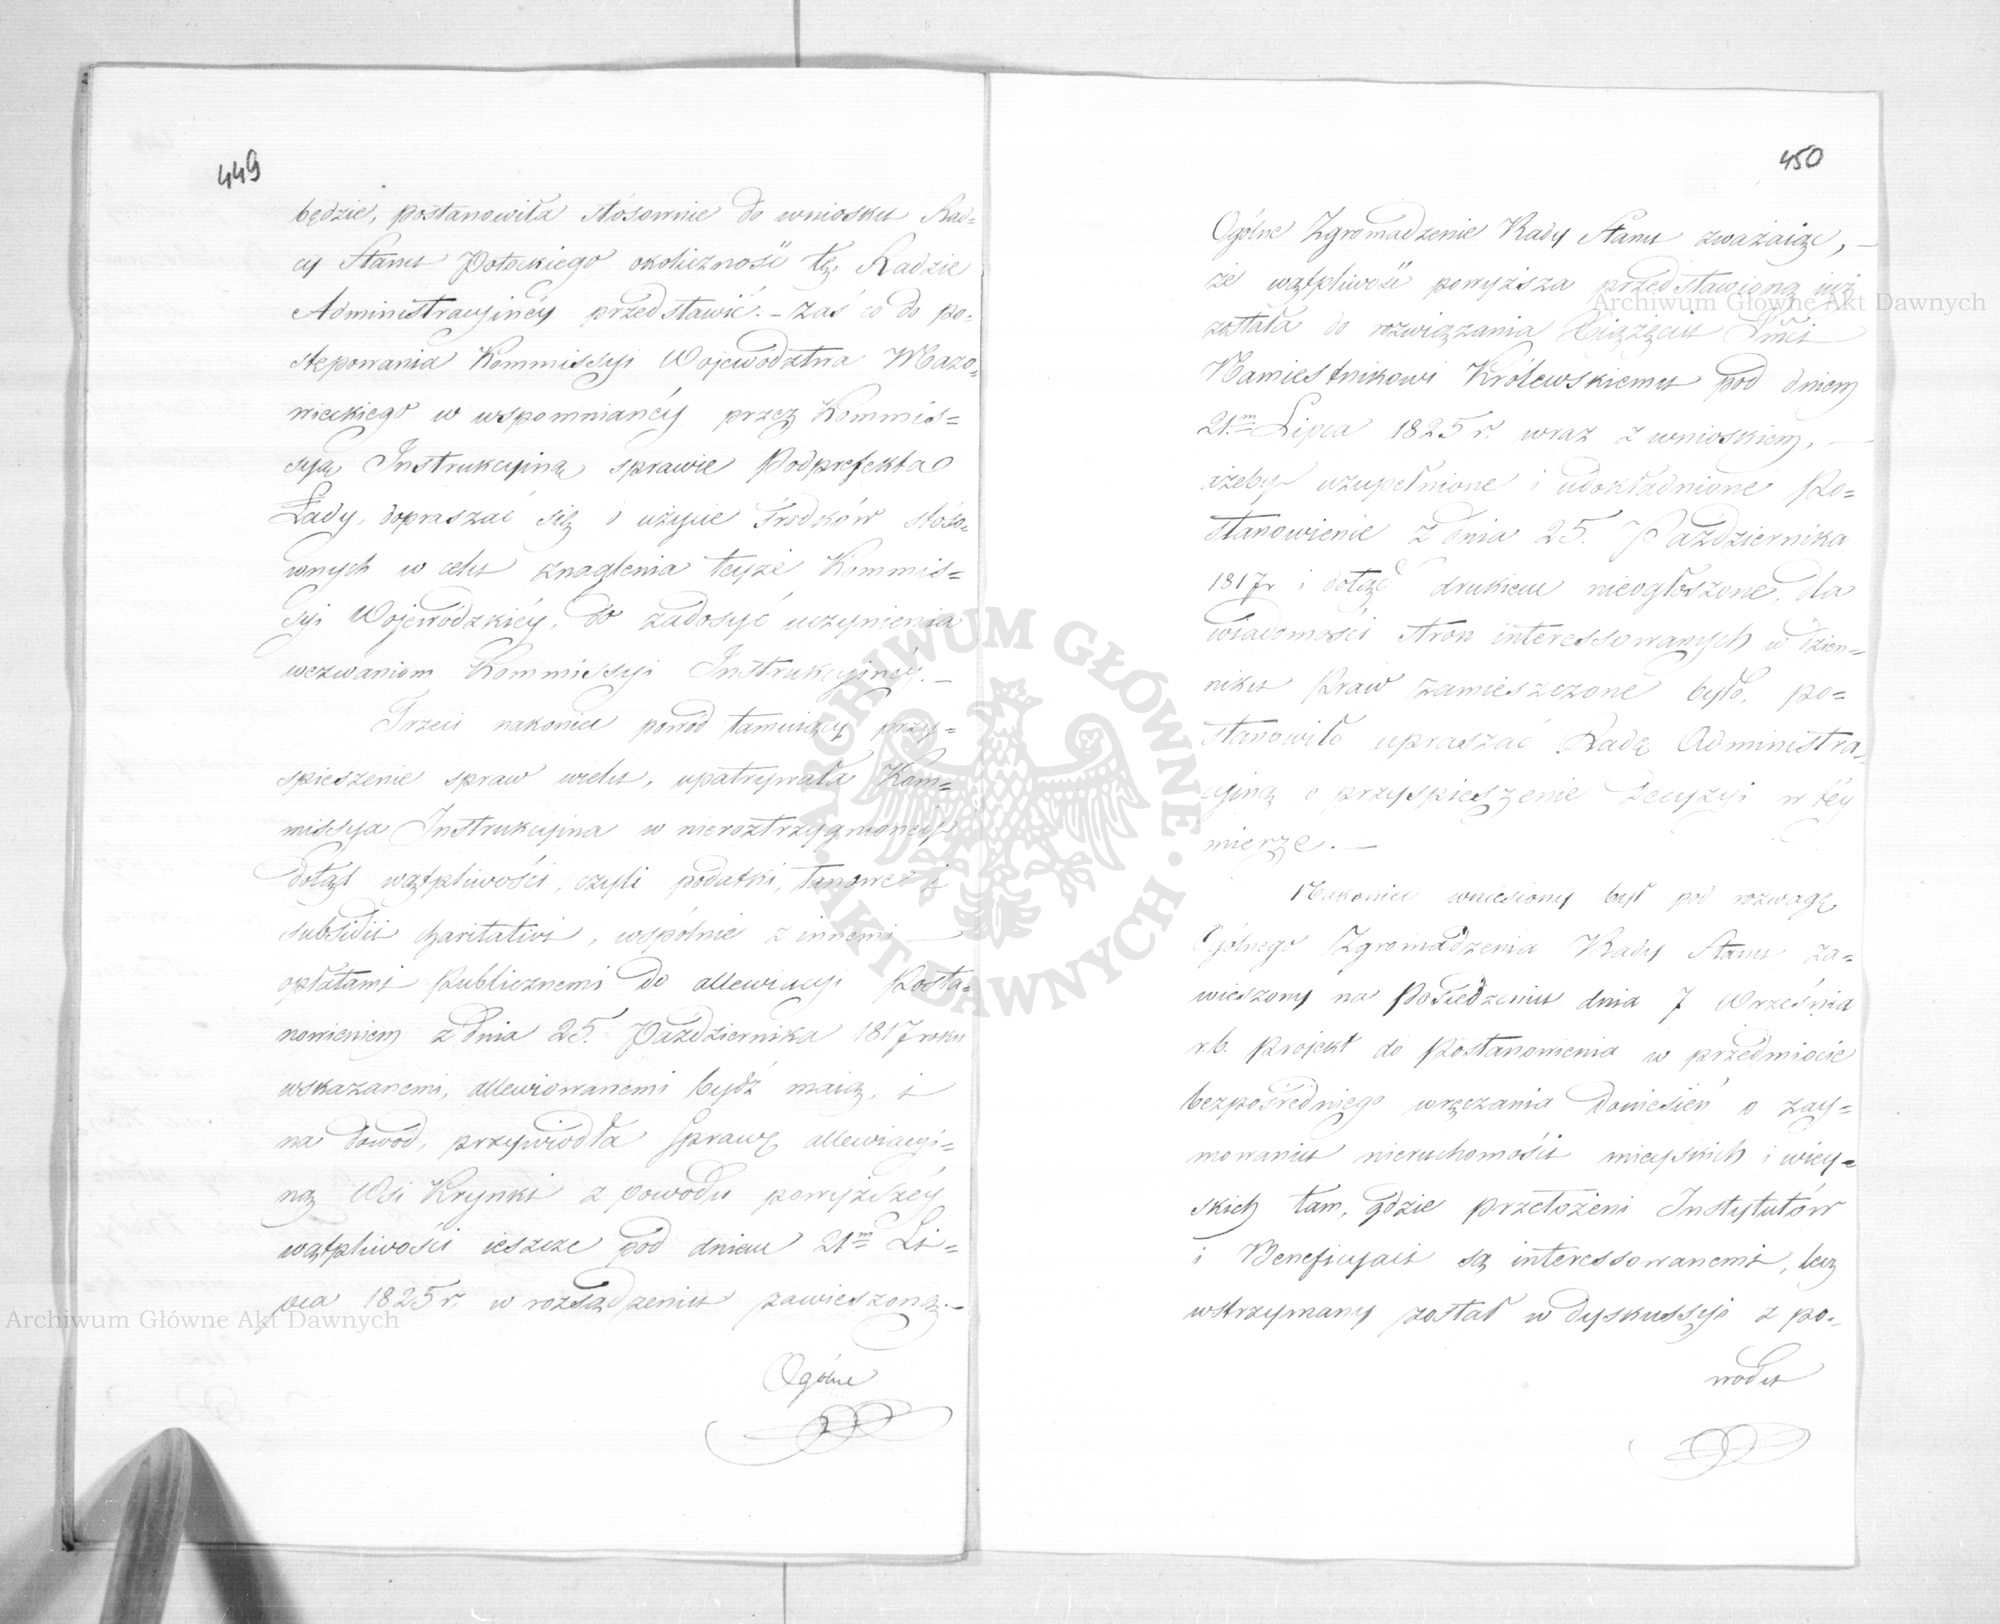 449
będzie, postanowiła stósownie do wniosku Rad=
cy Stanu Potockiego okoliczność tę, Radzie
Administracyinéy przedstawić. – Zaś co do po=
stępowania Kommissyi Województwa Mazo=
wieckiego w wspomnianéy przez Kommis=
syą Instrukcyiną sprawie Podprefekta
Łady, dopraszać się o użycie środków stóso=
wnych w celu znaglenia teyże Kommis=
syi Wojewódzkiéy, do zadosyć uczynienia
wezwaniom Kommissyi Instrukcyinéy. –
Trzeci nakoniec powód tamuiący przy=
spieszenie spraw wielu, upatrywała Kom=
missya Instrukcyina w nieroztrzygnionéy
dotąd wątpliwości, czyli podatki, łanowe i
subsidii charitativi, wspólnie z innemi –
opłatami Publicznemi do allewiacyi Posta=
nowieniem z dnia 25. Października 1817 roku
wskazanemi, allewiowanemi bydź maią, i
na dowód, przywiodła sprawę allewiacyi=
ną Wsi Krynki z powodu powyższéy
wątpliwości ieszcze pod dniem 21m Li=
pca 1825 r. w rozsądzeniu zawieszoną. –
Ogólne
450
Ogólne Zgromadzenie Rady Stanu zważaiąc, –
że wątpliwość powyższa przedstawioną iuż
została do rozwiązania Xiążęciu Jmci
Namiestnikowi Królewskiemu pod dniem
21m Lipca 1825 r. wraz z wnioskiem, –
ażeby uzupełnione i udokładnione Po=
stanowienie z dnia 25. Października
1817 r i dotąd drukiem nieogłoszone, dla
wiadomości stron interessowanych w Dzien=
niku Praw zamieszczone było, po=
stanowiło upraszać Radę Administra=
cyiną o przyspieszenie Decyzyi w téy
mierze. –
Nakoniec wniesiony był pod rozwagę
Ogólnego Zgromadzenia Rady Stanu za=
wieszony na Posiedzeniu dnia 7 Września
r.b. Projekt do Postanowienia w przedmiocie
bezpośredniego wręczania doniesień o zay=
mowaniu nieruchomości mieyskich i wiey=
skich tam, gdzie przełożeni Instytutów
i Beneficyaci są interessowanemi, lecz
wstrzymany został w dyskussyi z po=
wodu
Archiwum Główne Akt Dawnych
Archiwum Główne Akt Dawnych
ARCHIWUM GŁÓWNE · AKT DAWNYCH ·